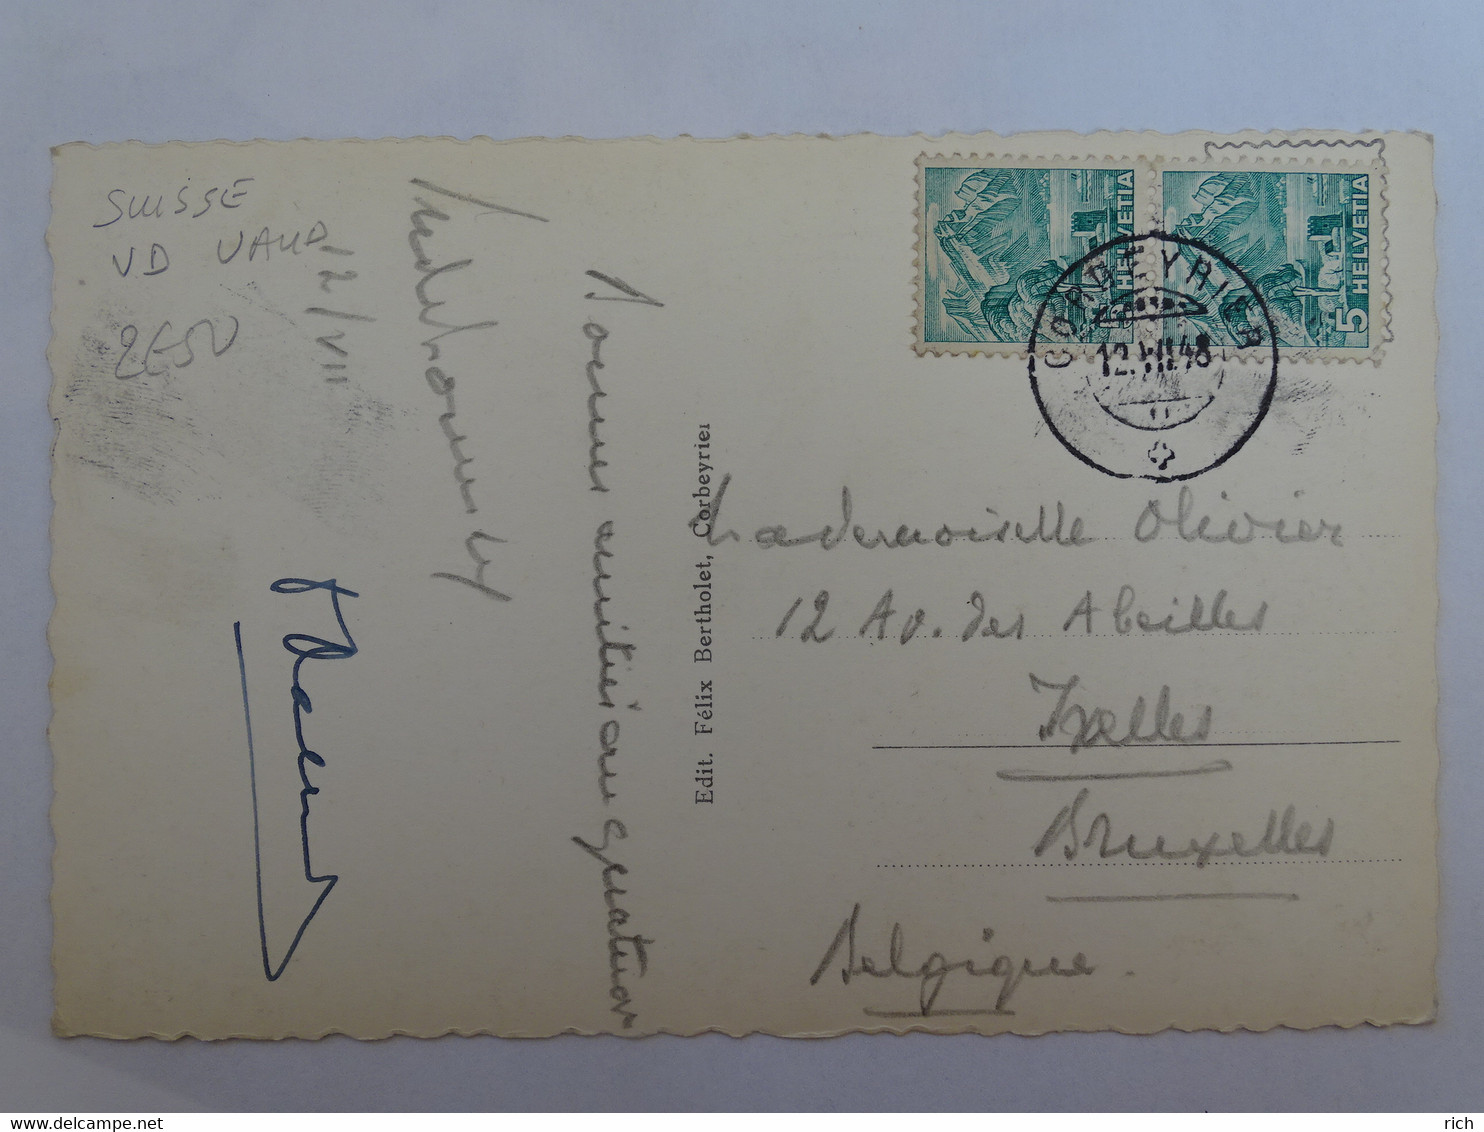 SUISSE
VD VAUD
2E50
12/VII
Bonne
Edit. Félix Bertholet, Corbeyrier
HELVETIA
5
HELVETIA
5
CORBEYRIER
12.VII.48
Mademoiselle Olivier
12 Av. des Abeilles
Ixelles
Bruxelles
Belgique.
delcampe.net
rich